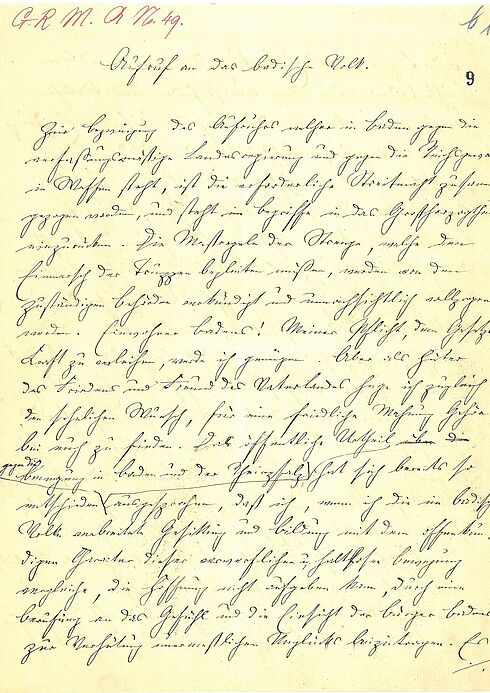 G. R. M. A No. 49.
9
Aufruf an das badische Volk.
Zur Bezwingung des Aufruhrs welcher in Baden gegen die
verfassungsmäßige Landesregierung und gegen die Reichsgewalt
in Waffen steht, ist die erforderliche Streitmacht zusammen
gezogen worden, und steht im Begriffe in das Großherzogthum
einzurücken. Die Maßregeln der Strenge, welche den
Einmarsch der Truppen begleiten müssen, werden von den
zuständigen Behörden verkündigt und unnachsichtlich vollzogen
werden. Einwohner Badens! Meiner Pflicht, dem Gesetze
Kraft zu verleihen, werde ich genügen. Aber als Hüter
des Friedens und Freund des Vaterlandes hege ich zugleich
den sehnlichen Wunsch, für eine friedliche Mahnung Gehör
bei euch zu finden. Das öffentliche Urtheil über die
gegen die
Bewegung in Baden und der Rheinpfalz hat sich bereits so
entschieden ausgesprochen, daß ich, wenn ich die im badischen
Volke verbreitete Gesittung und Bildung mit dem offenkun
digen Caracter dieser verwerflichen u haltlosen Bewegung
vergleiche, die Hoffnung nicht aufgeben kann, durch eine
Berufung an das Gefühl und die Einsicht der Bürger Badens
zur Verhütung unermeßlichen Unglücks beizutragen. Es